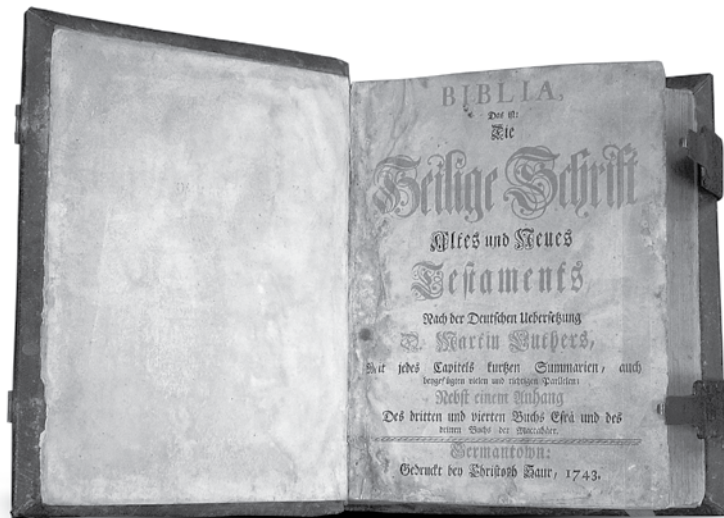 BIBLIA,
Das ist:
Die
Heilige Schrift
Altes und Neues
Testaments,
Nach der Deutschen Uebersetzung
D. Martin Luthers,
Mit jedes Capitels kurtzen Summarien, auch
beygefügten vielen und richtigen Parllelen:
Nebst einem Anhang
Des dritten und vierten Buchs Esrä und des
dritten Buchs der Maccabäer.
Germantown:
Gedruckt bey Christoph Saur, 1743.